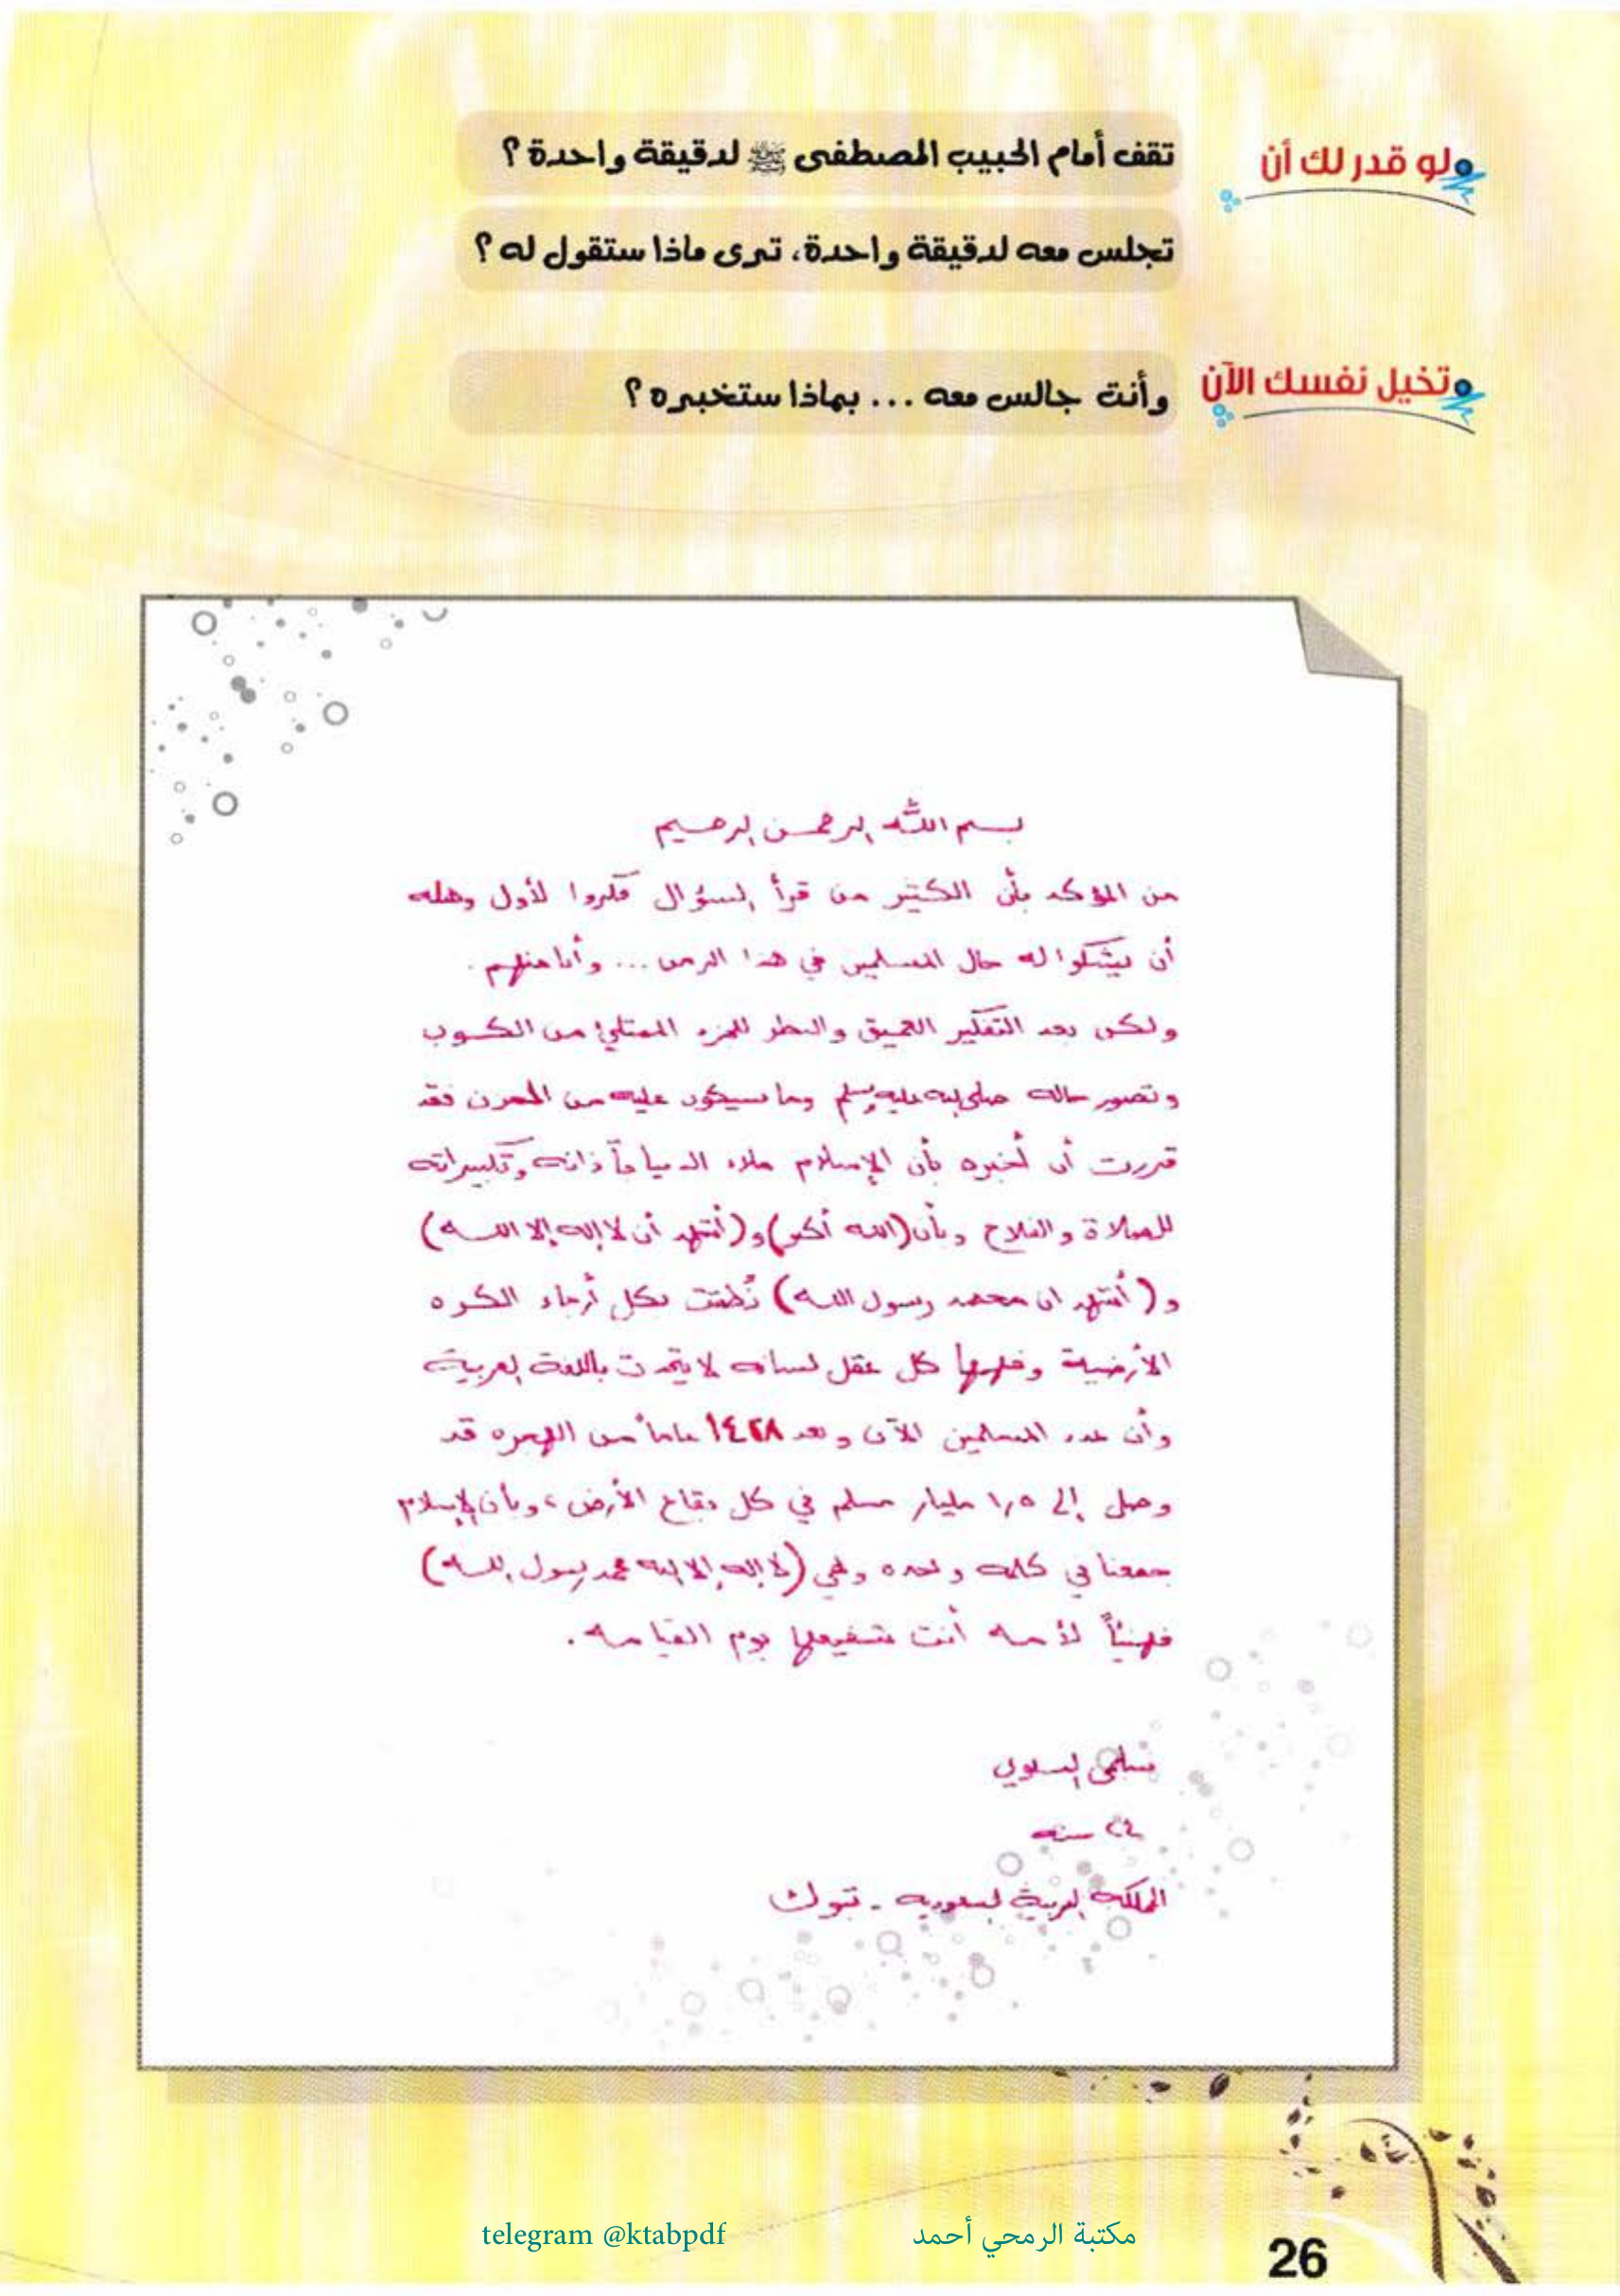 لو قدر لك أن تقف أمام الحبيب المصطفى ﷺ لدقيقة واحدة؟
تجلس معه لدقيقة واحدة، ترى ماذا ستقول له؟
تخيل نفسك الآن وأنت جالس معه ... بماذا ستخبره؟
بسم الله الرحمن الرحيم
من المؤكد بأن الكثير من قرأ السؤال فكروا لأول وهله
أن يشكوا له حال المسلمين في هذا الزمن ... وأنا منهم .
ولكن بعد التفكير العميق والنظر للجزء الممتلئ من الكوب
وتصور حاله صلى الله عليه وسلم وما سيكون عليه من الحزن فقد
قررت أن أخبره بأن الإسلام ملاء الدنيا بآذانه وتكبيراته
للصلاة والفلاح وبأن (الله أكبر) و(أشهد أن لا إله إلا الله)
و(أشهد ان محمد رسول الله) نُطقت بكل أرجاء الكره
الأرضية وفهمها كل عقل لسانه لا يتحدث باللغة العربية
وأن عدد المسلمين الآن وبعد ١٤٢٨ عاماً من الهجره قد
وصل إلى ١,٥ مليار مسلم في كل بقاع الأرض، وبأن الإسلام
جمعنا في كلمه واحده وهي (لا إله إلا الله محمد رسول الله)
فهنيئاً لأمه أنت شفيعها يوم القيامه .
سلمى البلوي
٢٤ سنه
المملكه العربية السعوديه - تبوك
telegram @ktabpdf مكتبة الرمحي أحمد
26